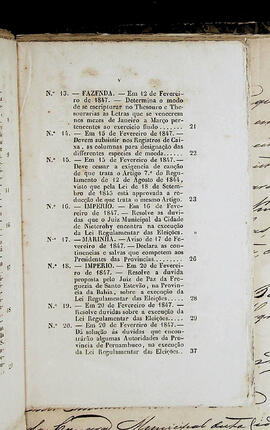 v
N.º 13. — FAZENDA. — Em 12 de Feverei-
ro de 1847. — Determina o modo
de se escripturar no Thesouro e The-
sourarias as Letras que se vencerem
nos mezes de Janeiro a Março per-
tencentes ao exercicio findo ....... 21
N.º 14. — Em 15 de Fevereiro de 1847. —
Devem subsistir nos Registros de Cai-
xa, as columnas para designação das
differentes especies de moeda ...... 22
N.º 15. — Em 15 de Fevereiro de 1847. —
Deve cessar a exigencia de canção
de que trata o Artigo 7.º do Regu-
lamento de 12 de Agosto de 1844,
visto que pela Lei de 18 de Setem-
bro de 1845 está approvada a re-
ducção de que trata o mesmo Artigo. 23
N.º 16. — IMPERIO. — Em 16 de Feve-
reiro de 1847. — Resolve as du-
vidas que o Juiz Municipal da Cidade
de Nicterohy encontra na execução
da Lei Regulamentar das Eleições.
N.º 17. — MARINHA. — Aviso de 17 de Fe-
vereiro de 1847. — Declara as con-
tinencias e salvas que competem aos
Presidentes das Provincias.
N.º 18. — IMPERIO. — Em 20 de Feverei-
ro de 1847. — Resolve a duvida
proposta pelo Juiz de Paz da Fre-
guezia de Santo Estevão, na Provin-
cia da Bahia, sobre a execução da
Lei Regulamentar das Eleições. 28
N.º 19. — Em 20 de Fevereiro de 1847. —
Resolve duvidas sobre a execução da
Lei Regulamentar das Eleições. 29
N.º 20. — Em 20 de Fevereiro de 1847. —
Dá solução ás duvidas que encon-
trárão algumas Autoridades da Pro-
vincia de Pernambuco, na execução
da Lei Regulamentar das Eleições. 37